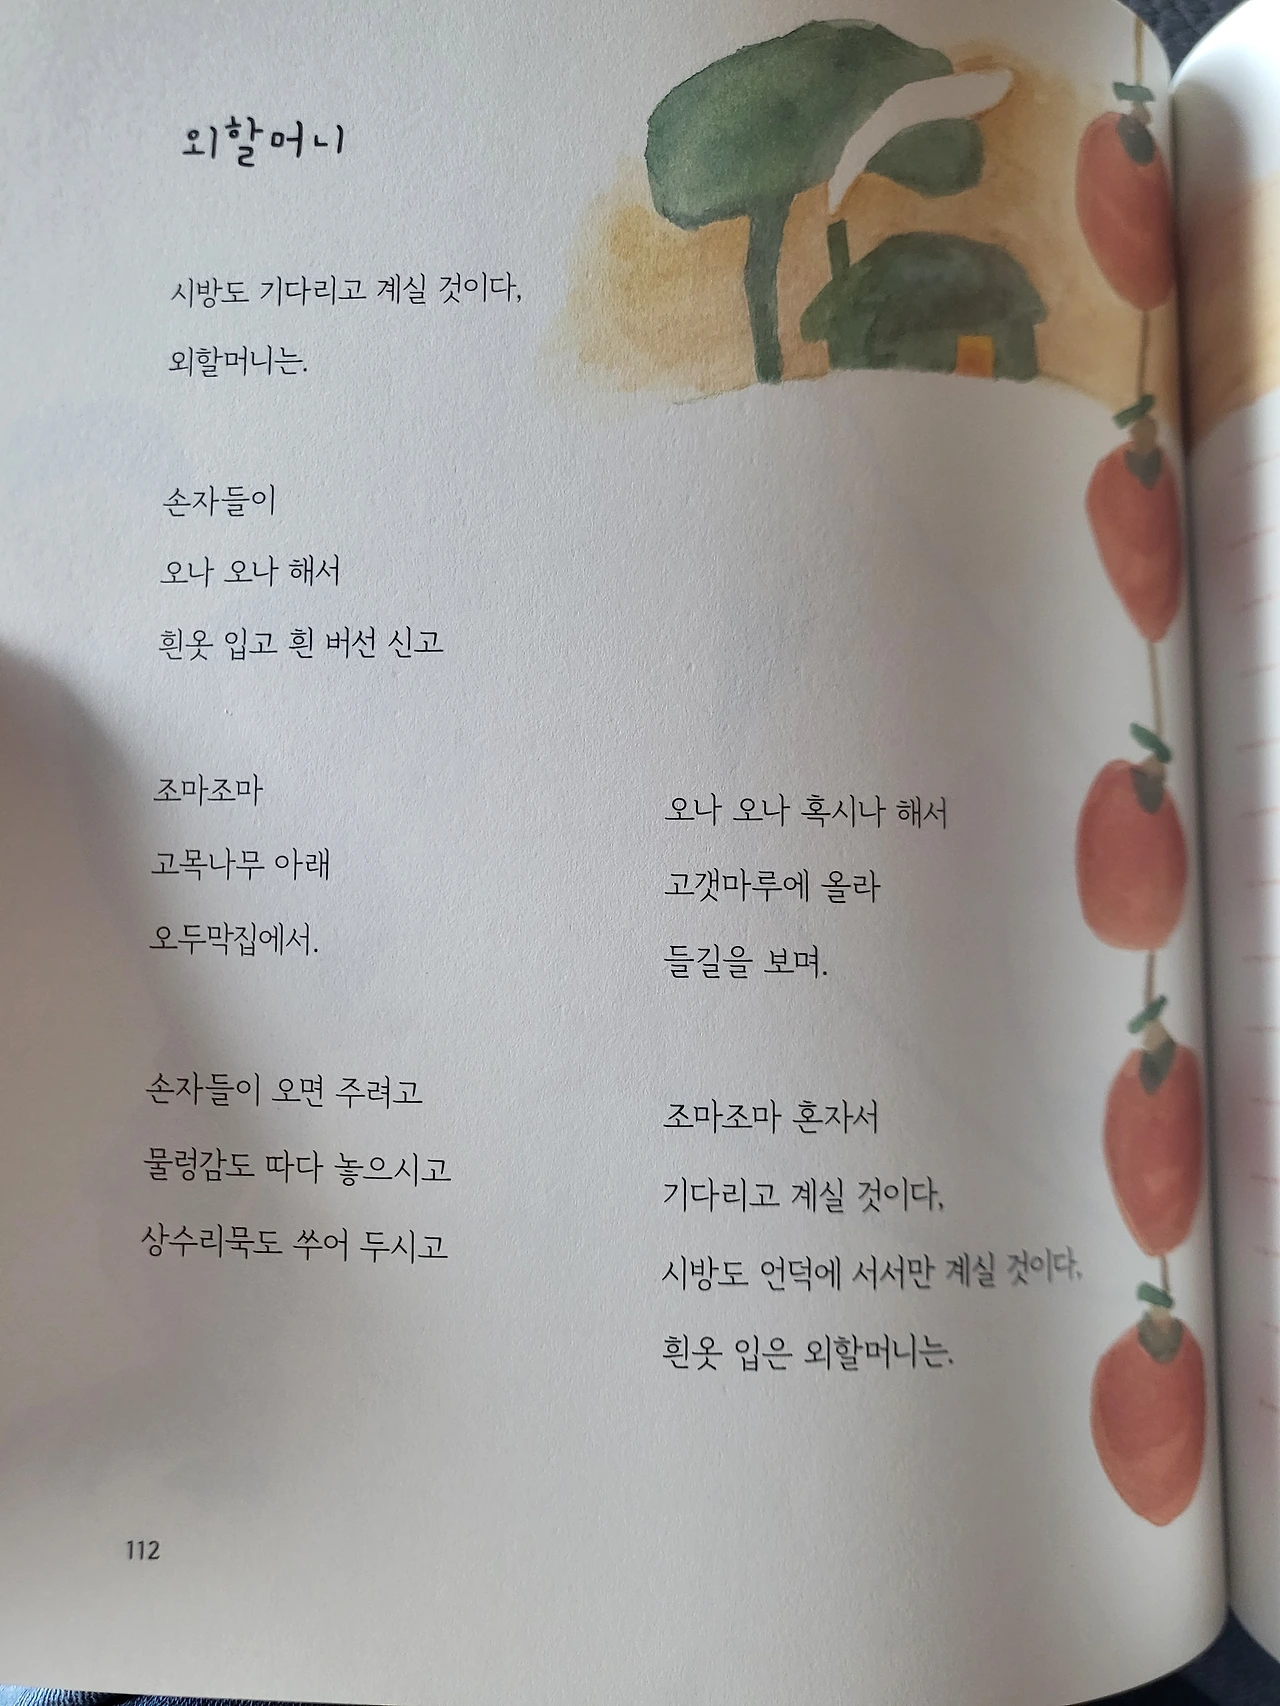 외할머니
시방도 기다리고 계실 것이다,
외할머니는.
손자들이
오나 오나 해서
흰옷 입고 흰 버선 신고
조마조마
고목나무 아래
오두막집에서.
손자들이 오면 주려고
물렁감도 따다 놓으시고
상수리묵도 쑤어 두시고
오나 오나 혹시나 해서
고갯마루에 올라
들길을 보며.
조마조마 혼자서
기다리고 계실 것이다,
시방도 언덕에 서서만 계실 것이다,
흰옷 입은 외할머니는.
112